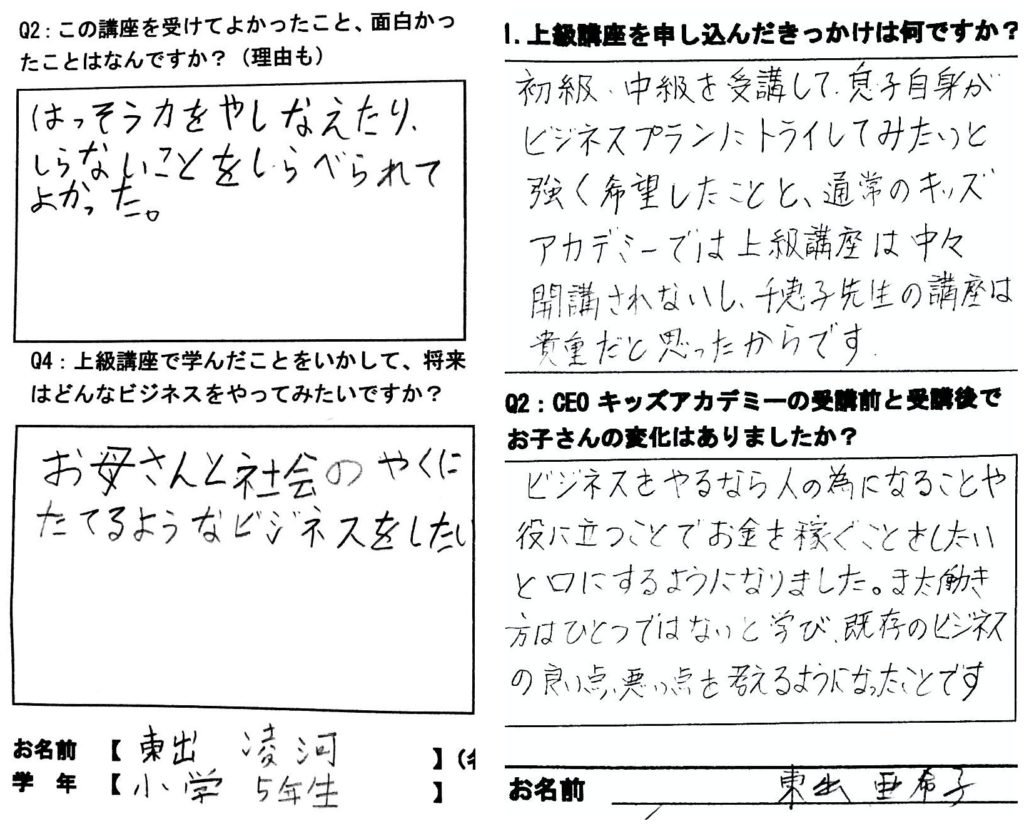 Q2：この講座を受けてよかったこと、面白かっ
たことはなんですか？（理由も）
はっそう力をやしなえたり、
しらないことをしらべられて
よかった。
Q4：上級講座で学んだことをいかして、将来
はどんなビジネスをやってみたいですか？
お母さんと社会のやくに
たてるようなビジネスをしたい
お名前 【 東出 凌河 】（
学 年 【 小学 5年生 】
1. 上級講座を申し込んだきっかけは何ですか？
初級、中級を受講して、息子自身が
ビジネスプランにトライしてみたいと
強く希望したことと、通常のキッズ
アカデミーでは上級講座は中々
開講されないし、千恵子先生の講座は
貴重だと思ったからです.
Q2：CEO キッズアカデミーの受講前と受講後で
お子さんの変化はありましたか？
ビジネスをやるなら人の為になることや
役に立つことでお金を稼ぐことをしたい
と口にするようになりました。また働き
方はひとつではないと学び、既存のビジネス
の良い点、悪い点を考えるようになったことです
お名前 東出 亜希子